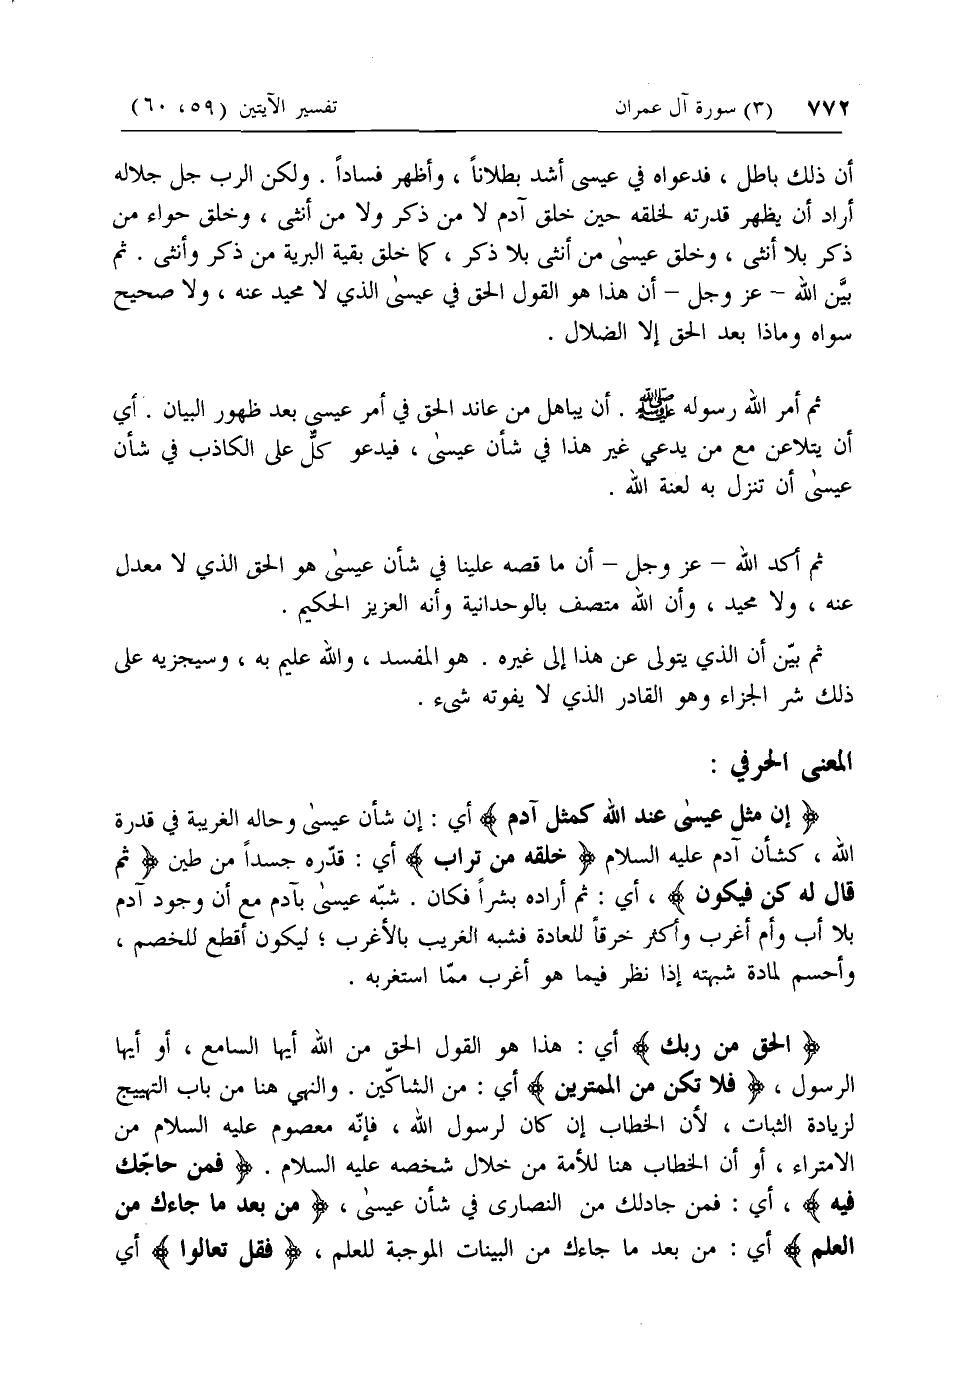 ٧٧٢ (٣) سورة آل عمران تفسير الآيتين (٥٩، ٦٠)
أن ذلك باطل ، فدعواه في عيسى أشد بطلاناً ، وأظهر فساداً . ولكن الرب جل جلاله
أراد أن يظهر قدرته لخلقه حين خلق آدم لا من ذكر ولا من أنثى ، وخلق حواء من
ذكر بلا أنثى ، وخلق عيسىٰ من أنثى بلا ذكر ، كما خلق بقية البرية من ذكر وأنثى . ثم
بيَّن الله – عز وجل – أن هذا هو القول الحق في عيسىٰ الذي لا محيد عنه ، ولا صحيح
سواه وماذا بعد الحق إلا الضلال .
ثم أمر الله رسوله ﷺ . أن يباهل من عاند الحق في أمر عيسى بعد ظهور البيان . أي
أن يتلاعن مع من يدعي غير هذا في شأن عيسىٰ ، فيدعو كلٌّ على الكاذب في شأن
عيسىٰ أن تنزل به لعنة الله .
ثم أكد الله – عز وجل – أن ما قصه علينا في شأن عيسىٰ هو الحق الذي لا معدل
عنه ، ولا محيد ، وأن الله متصف بالوحدانية وأنه العزيز الحكيم .
ثم بيّن أن الذي يتولى عن هذا إلى غيره . هو المفسد ، والله عليم به ، وسيجزيه على
ذلك شر الجزاء وهو القادر الذي لا يفوته شيء .
المعنى الحرفي :
﴿ إن مثل عيسىٰ عند الله كمثل آدم ﴾ أي : إن شأن عيسىٰ وحاله الغريبة في قدرة
الله ، كشأن آدم عليه السلام ﴿ خلقه من تراب ﴾ أي : قدّره جسداً من طين ﴿ ثم
قال له كن فيكون ﴾ ، أي : ثم أراده بشراً فكان . شبّه عيسىٰ بآدم مع أن وجود آدم
بلا أب وأم أغرب وأكثر خرقاً للعادة فشبه الغريب بالأغرب ؛ ليكون أقطع للخصم ،
وأحسم لمادة شبهته إذا نظر فيما هو أغرب ممّا استغربه .
﴿ الحق من ربك ﴾ أي : هذا هو القول الحق من الله أيها السامع ، أو أيها
الرسول ، ﴿ فلا تكن من الممترين ﴾ أي : من الشاكّين . والنهي هنا من باب التهييج
لزيادة الثبات ، لأن الخطاب إن كان لرسول الله ، فإنّه معصوم عليه السلام من
الامتراء ، أو أن الخطاب هنا للأمة من خلال شخصه عليه السلام . ﴿ فمن حاجّك
فيه ﴾ ، أي : فمن جادلك من النصارى في شأن عيسىٰ ، ﴿ من بعد ما جاءك من
العلم ﴾ أي : من بعد ما جاءك من البينات الموجبة للعلم ، ﴿ فقل تعالوا ﴾ أي